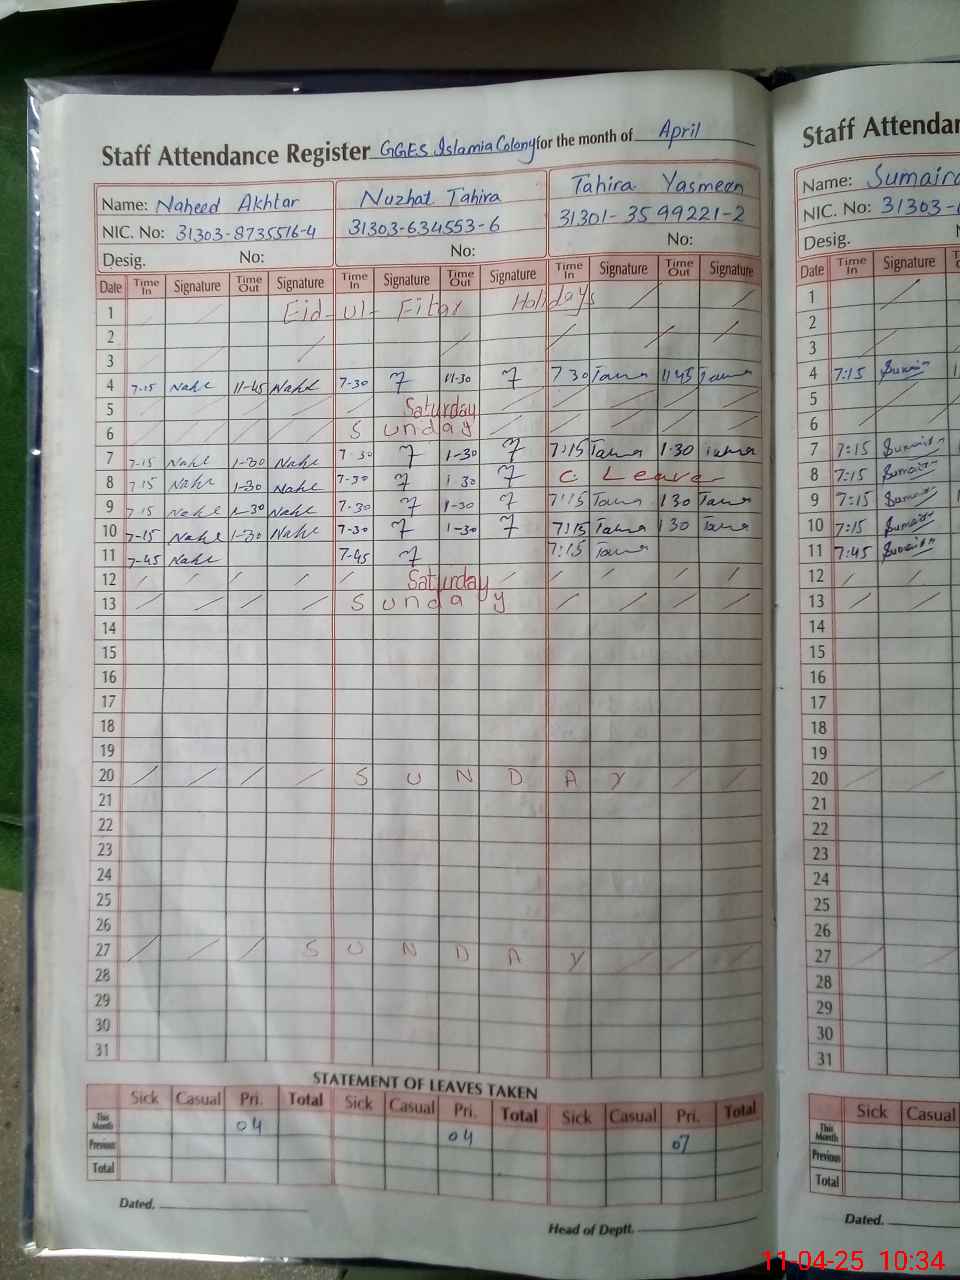 Staff Attendance Register GGES Islamia Colony for the month of April
Name: Naheed Akhtar Nuzhat Tahira Tahira Yasmeen
NIC. No: 31303-8735516-4 31303-634553-6 31301-3599221-2
Desig. No: No: No:
Date Time In Signature Time Out Signature Time In Signature Time Out Signature Time In Signature Time Out Signature
1 Eid-ul-Fitar Holidays
2
3
4 7-15 Nahl 11-45 Nahl 7-30 11-30 7 30 11 45
5 Saturday
6 Sunday
7 7-15 Nahl 1-30 Nahl 7-30 1-30 7:15 1.30
8 7 15 Nahl 1-30 Nahl 7-30 1 30 C. Leave
9 7 15 Nahl 1-30 Nahl 7-30 1-30 7:15 1 30
10 7-15 Nahl 1-30 Nahl 7-30 1-30 7:15 1 30
11 7-45 Nahl 7-45 7:15
12 Saturday
13 Sunday
14
15
16
17
18
19
20 SUNDAY
21
22
23
24
25
26
27 SUNDAY
28
29
30
31
STATEMENT OF LEAVES TAKEN
Sick Casual Pri. Total Sick Casual Pri. Total Sick Casual Pri. Total
This Month 04 04 07
Previous
Total
Dated.
Head of Deptt.
Staff Attendan
Name: Sumaira
NIC. No: 31303-
Desig.
Date Time In Signature
1
2
3
4 7:15
5
6
7 7:15
8 7:15
9 7:15
10 7:15
11 7:45
12
13
14
15
16
17
18
19
20
21
22
23
24
25
26
27
28
29
30
31
Sick Casual
This Month
Previous
Total
Dated.
11-04-25 10:34